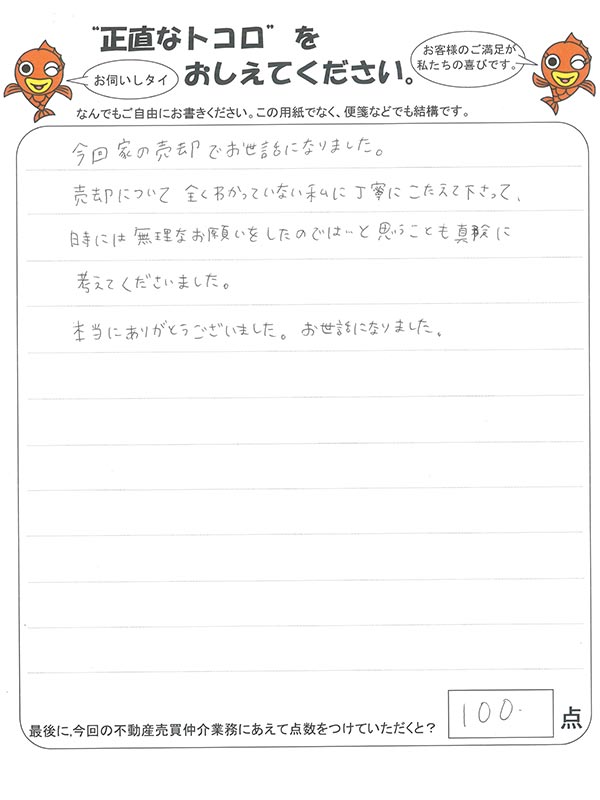 "正直なトコロ"を
おしえてください。
お伺いしタイ
お客様のご満足が
私たちの喜びです。
なんでもご自由にお書きください。この用紙でなく、便箋などでも結構です。
今回家の売却でお世話になりました。
売却について全くわかっていない私に丁寧にこたえて下さって、
時には無理なお願いをしたのではないと思うことも真剣に
考えてくださいました。
本当にありがとうございました。お世話になりました。
最後に,今回の不動産売買仲介業務にあえて点数をつけていただくと?
100. 点